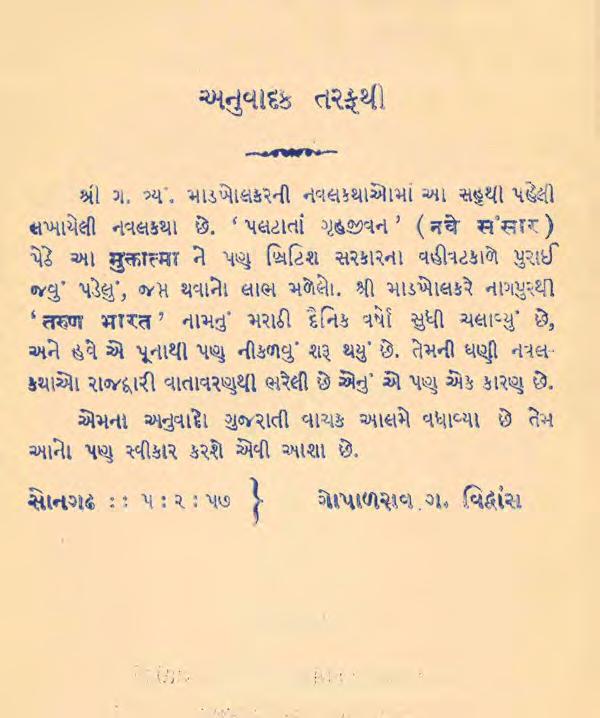 અનુવાદક તરફથી
શ્રી ગ. ત્ર્યં. માડખોલકરની નવલકથાઓમાં આ સહુથી પહેલી
લખાયેલી નવલકથા છે. ‘પલટાતાં ગૃહજીવન’ (નવે સંસાર)
પેઠે આ મુક્તાત્મા ને પણ બ્રિટિશ સરકારના વહીવટકાળે પુરાઈ
જવું પડેલું, જપ્ત થવાનો લાભ મળેલો. શ્રી માડખોલકરે નાગપુરથી
‘તરુણ ભારત’ નામનું મરાઠી દૈનિક વર્ષો સુધી ચલાવ્યું છે,
અને હવે એ પૂનાથી પણ નીકળવું શરૂ થયું છે. તેમની ઘણી નવલ-
કથાઓ રાજદ્વારી વાતાવરણથી ભરેલી છે એનું એ પણ એક કારણ છે.
એમના અનુવાદો ગુજરાતી વાચક આલમે વધાવ્યા છે તેમ
આનો પણ સ્વીકાર કરશે એવી આશા છે.
સોનગઢ :: ૫ : ૨ : ૫૭ } ગોપાળરાવ ગ. વિદ્વાંસ